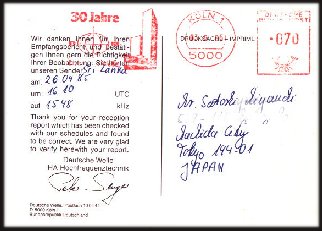 30 Jahre
KÖLN 1
5000
DRUCKSACHE - IMPRIMÉ
DEUTSCHE
070
Wir danken Ihnen für Ihren
Empfangsbericht und bestäti-
gen Ihnen gern die Richtigkeit
Ihrer Beobachtung. Sie hörten
unseren Sender Sri Lanka
am 26.04.85
um 1610 UTC
auf 1548 kHz
Thank you for your reception
report which has been checked
with our schedules and found
to be correct. We are very glad
to verify herewith your report.
Deutsche Welle
HA Hochfrequenztechnik
Deutsche Welle
D 5000 Köln
Bundesrepublik Deutschland
Mr. Satoshi
City
Tokyo 194-01
JAPAN